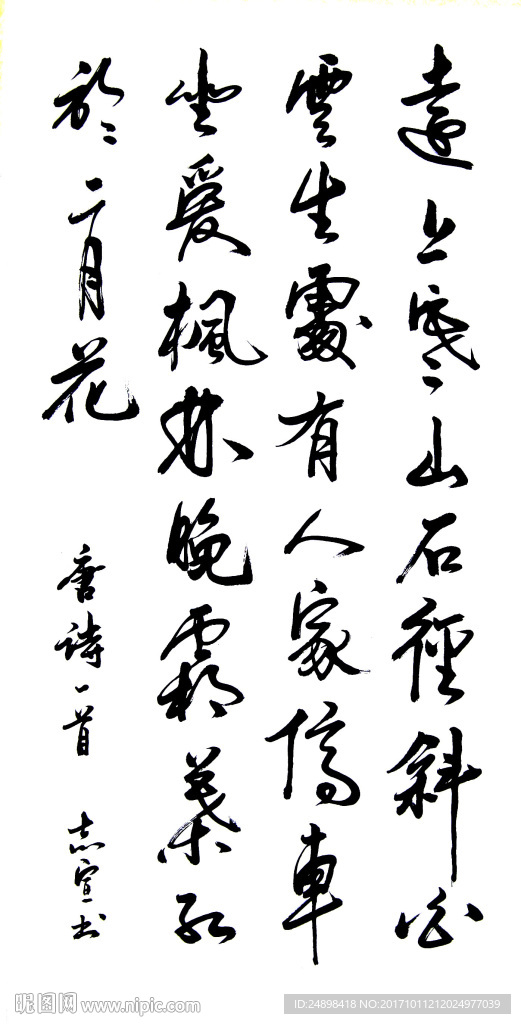 遠上寒山石徑斜白
雲生處有人家停車
坐愛楓林晚霜葉紅
於二月花
唐詩一首 志宣书
昵图网 www.nipic.com
ID:24898418 NO:20171011212024977039